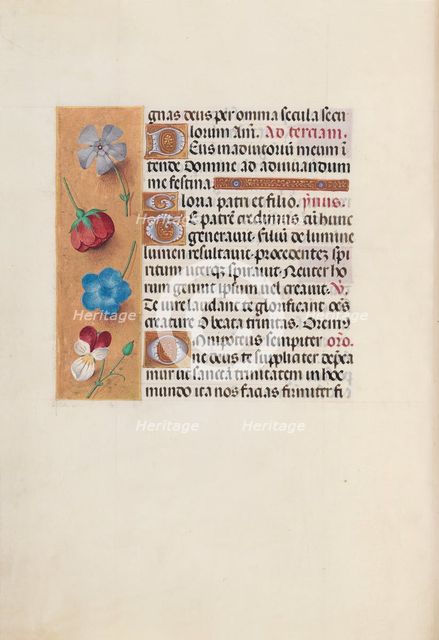 gnas deus per omnia secula secu
lorum Am̃. Ad terciam.
Deus in adiutoriũ meum ĩ
tende Domine ad adiuuandum
me festina.
Gloria patri et filio. ẏmnus.
Te patrẽ credimus cũ hunc
generauit filiũ de lumine
lumen resultauit procedentez spi
ritum uterqz spirauit Neuter ho
rum genuit ipsum uel creauit. V.
Te iure laudant te glorificant oẽs
creature O beata trinitas. Oremus
Omnipotens sempiter oro.
ne deus te suppliciter depca
mur ut sanctã trinitatem in hoc
mundo ita nos facias firmiter fi
Heritage
Heritage
Heritage
Heritage
Heritage
Heritage